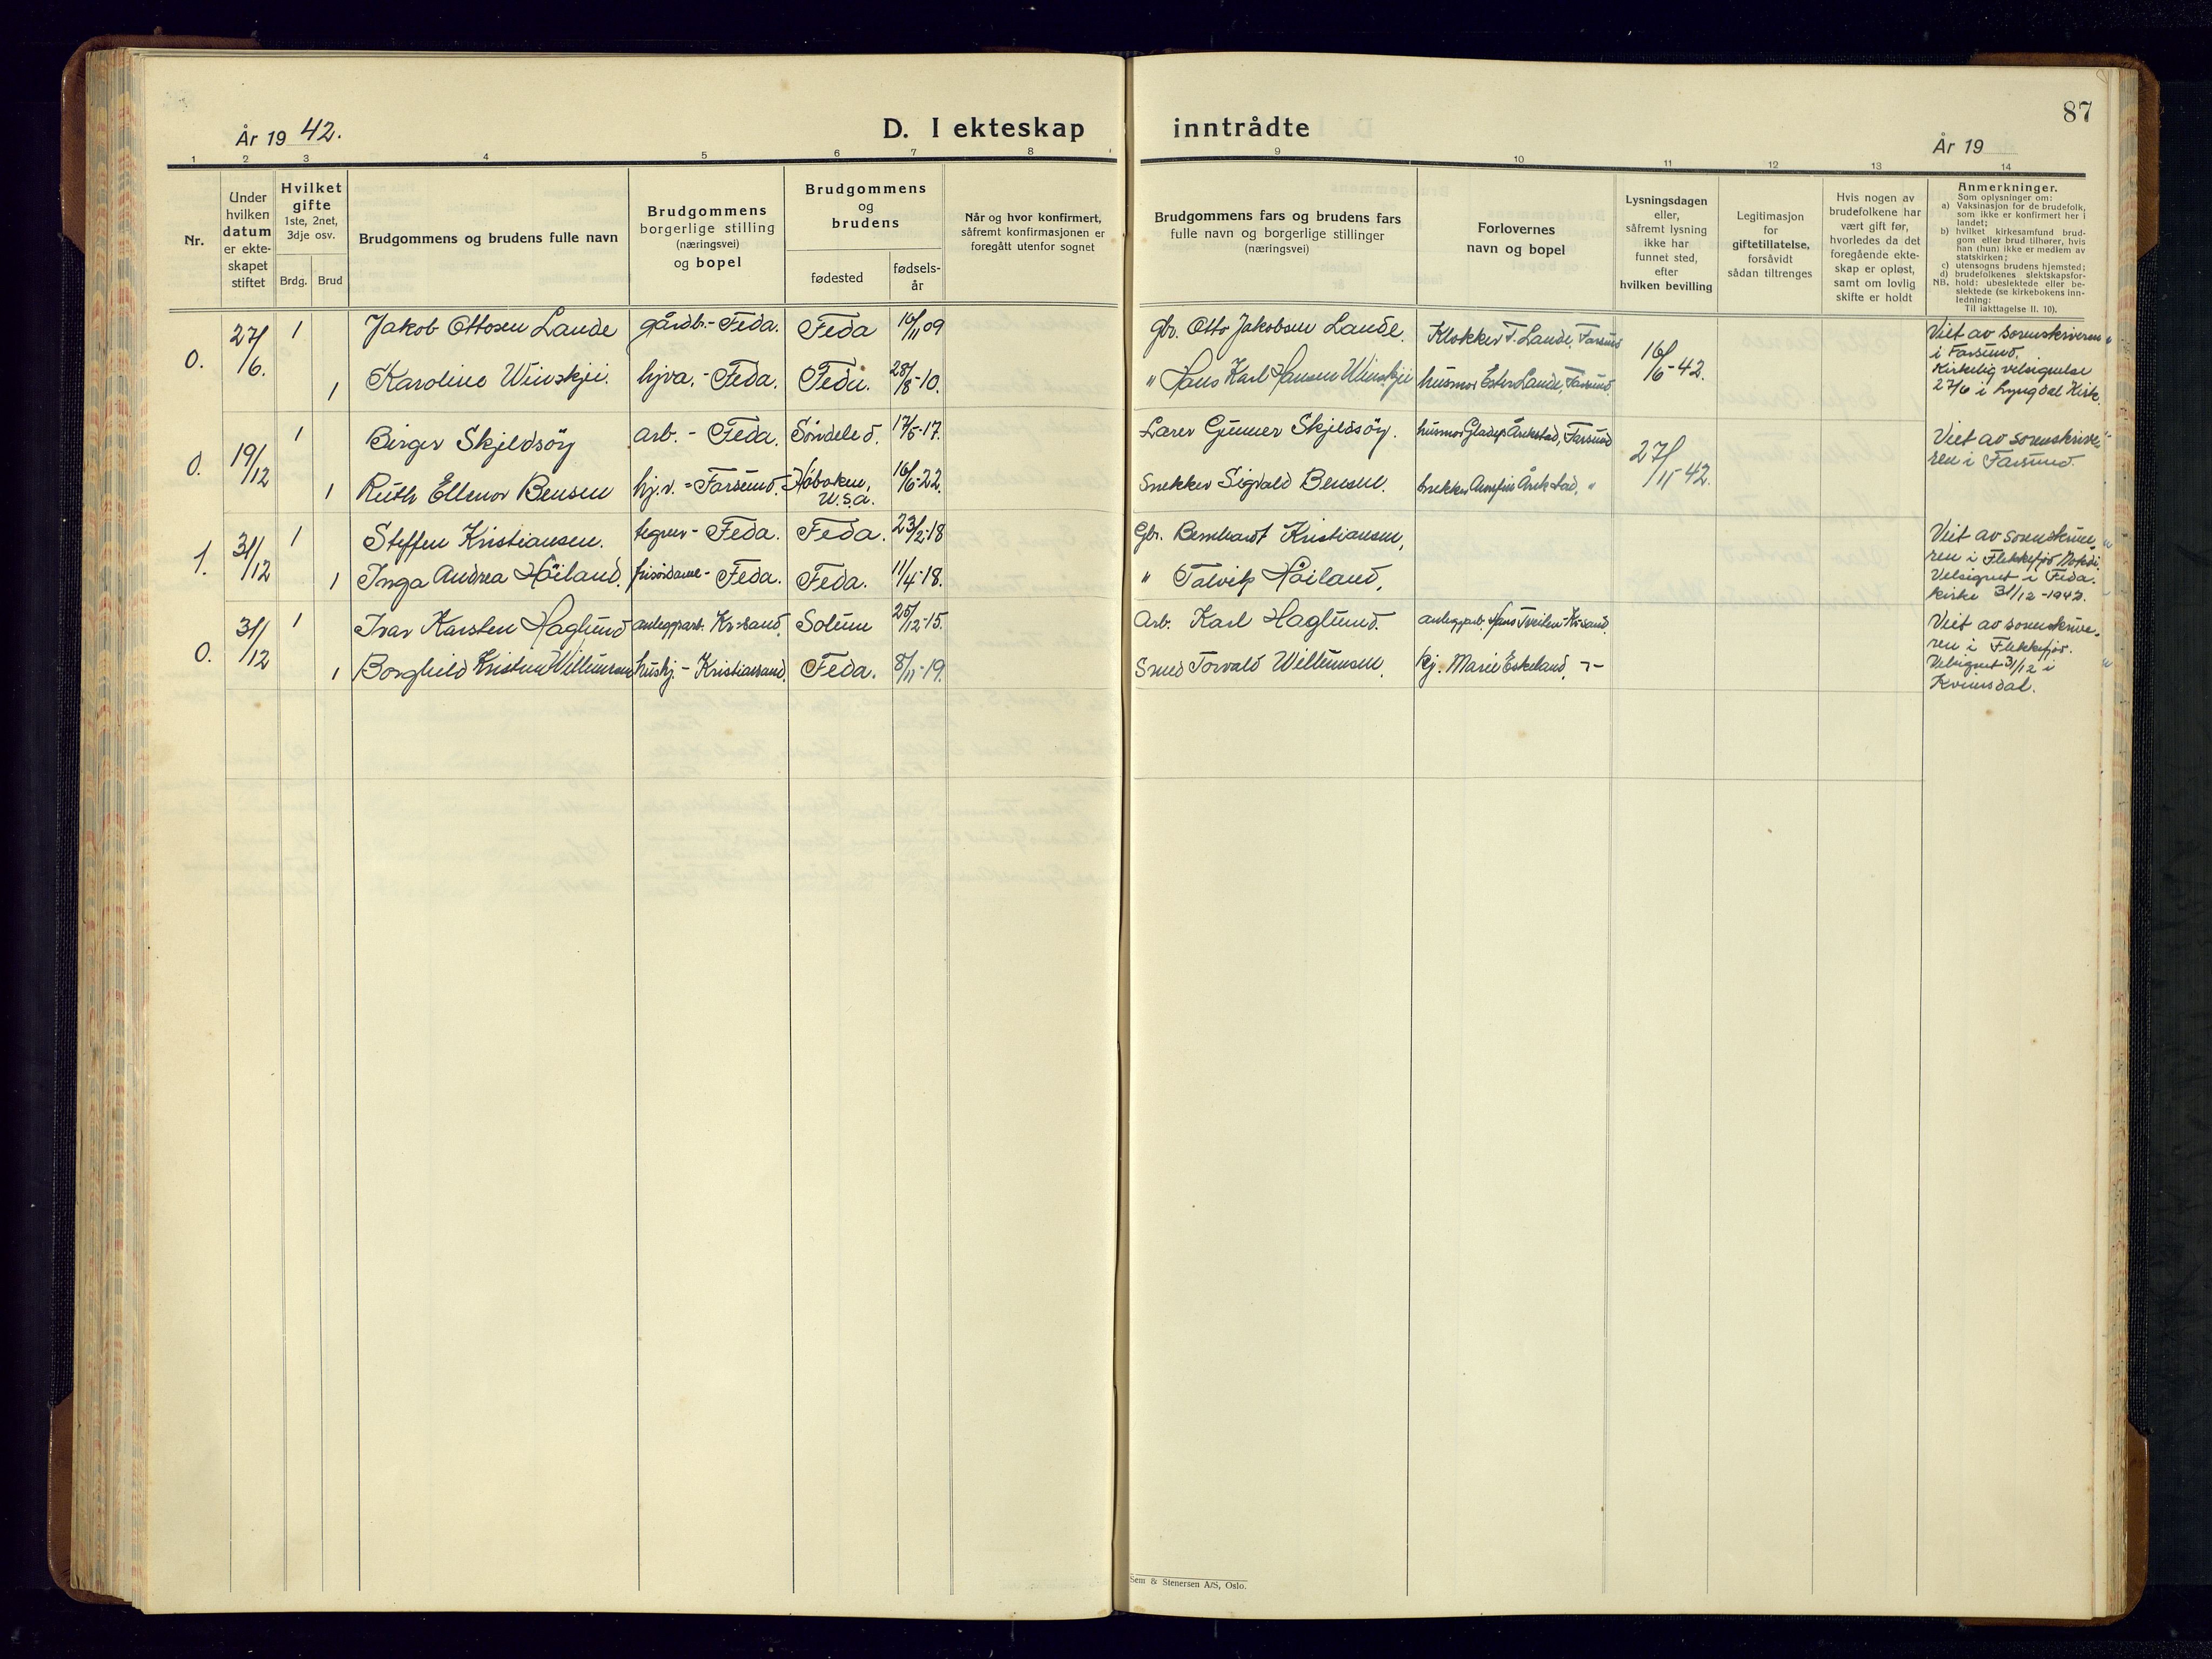 87
År 19 42.
D. I ekteskap inntrådte
År 19
1 2 3 4 5 6 7 8 9 10 11 12 13 14
Nr.
Under
hvilken
datum
er ekte-
skapet
stiftet
Hvilket
gifte
1ste, 2net,
3dje osv.
Brdg. Brud
Brudgommens og brudens fulle navn
Brudgommens
borgerlige stilling
(næringsvei)
og bopel
Brudgommens
og
brudens
fødested
fødsels-
år
Når og hvor konfirmert,
såfremt konfirmasjonen er
foregått utenfor sognet
Brudgommens fars og brudens fars
fulle navn og borgerlige stillinger
(næringsvei)
Forlovernes
navn og bopel
Lysningsdagen
eller,
såfremt lysning
ikke har
funnet sted,
efter
hvilken bevilling
Legitimasjon
for
giftetillatelse,
forsåvidt
sådan tiltrenges
Hvis nogen av
brudefolkene har
vært gift før,
hvorledes da det
foregående ekte-
skap er opløst,
samt om lovlig
skifte er holdt
Anmerkninger.
Som oplysninger om:
a) Vaksinasjon for de brudefolk,
som ikke er konfirmert her i
landet;
b) hvilket kirkesamfund brud-
gom eller brud tilhører, hvis
han (hun) ikke er medlem av
statskirken;
c) utensogns brudens hjemsted;
d) brudefolkenes slektskapsfor-
NB. hold: ubeslektede eller be-
slektede (se kirkebokens inn-
ledning:
Til iakttagelse II. 10).
0. 27/6. 1 Jakob Ottosen Lande gårdb.- Feda. Feda 10/11 09 gbr. Otto Jakobsen Lande. Klokker T. Lande, Farsund 16/6-42.
1 Karoline Winskjei. hjva.- Feda. Feda. 28/8-10. " Hans Karl Hansen Winskjei husmor Ester Lande, Farsund.
Viet av sorenskriveren
i Farsund.
Kirkelig velsignelse
27/6 i Lyngdal Kirke.
0. 19/12 1 Birger Skjeldsöy arb. - Feda. Söndeled. 17/5-17. Lærer Gunner Skjeldsöy. husmor Gladys Årikstad, Farsund 27/11-42.
1 Ruth Ellenor Bensen hj.v. - Farsund. Hoboken, U.S.A. 16/6-22. Snekker Sigvald Bensen. snekker Arnfin Årikstad, "
Viet av sorenskrive-
ren i Farsund.
1. 31/12 1 Steffen Kristiansen. tegner- Feda. Feda. 23/2-18 Gbr. Bernhardt Kristiansen,
1 Inga Andrea Höiland. frisördame- Feda. Feda. 11/4-18. " Tolvik Höiland,
Viet av sorenskrive-
ren i Flekkefjord
Velsignet i Feda.
kirke 31/12-1942.
0. 31/12 1 Ivar Karsten Haglund anleggsarb. Kr-sand. Solum 25/12-15. Arb. Karl Haglund. anleggsarb. Hans Tveiten-Kr-sand.
1 Borghild Kristine Willumsen hushj.- Kristiansand. Feda. 8/11-19. Smed Torvald Willumsen. hj. Marie Eskeland, -"-
Viet av sorenskrive-
ren i Flekkefjord.
Velsignet 31/12 i
Kvinesdal.
Sem & Stenersen A/S, Oslo.